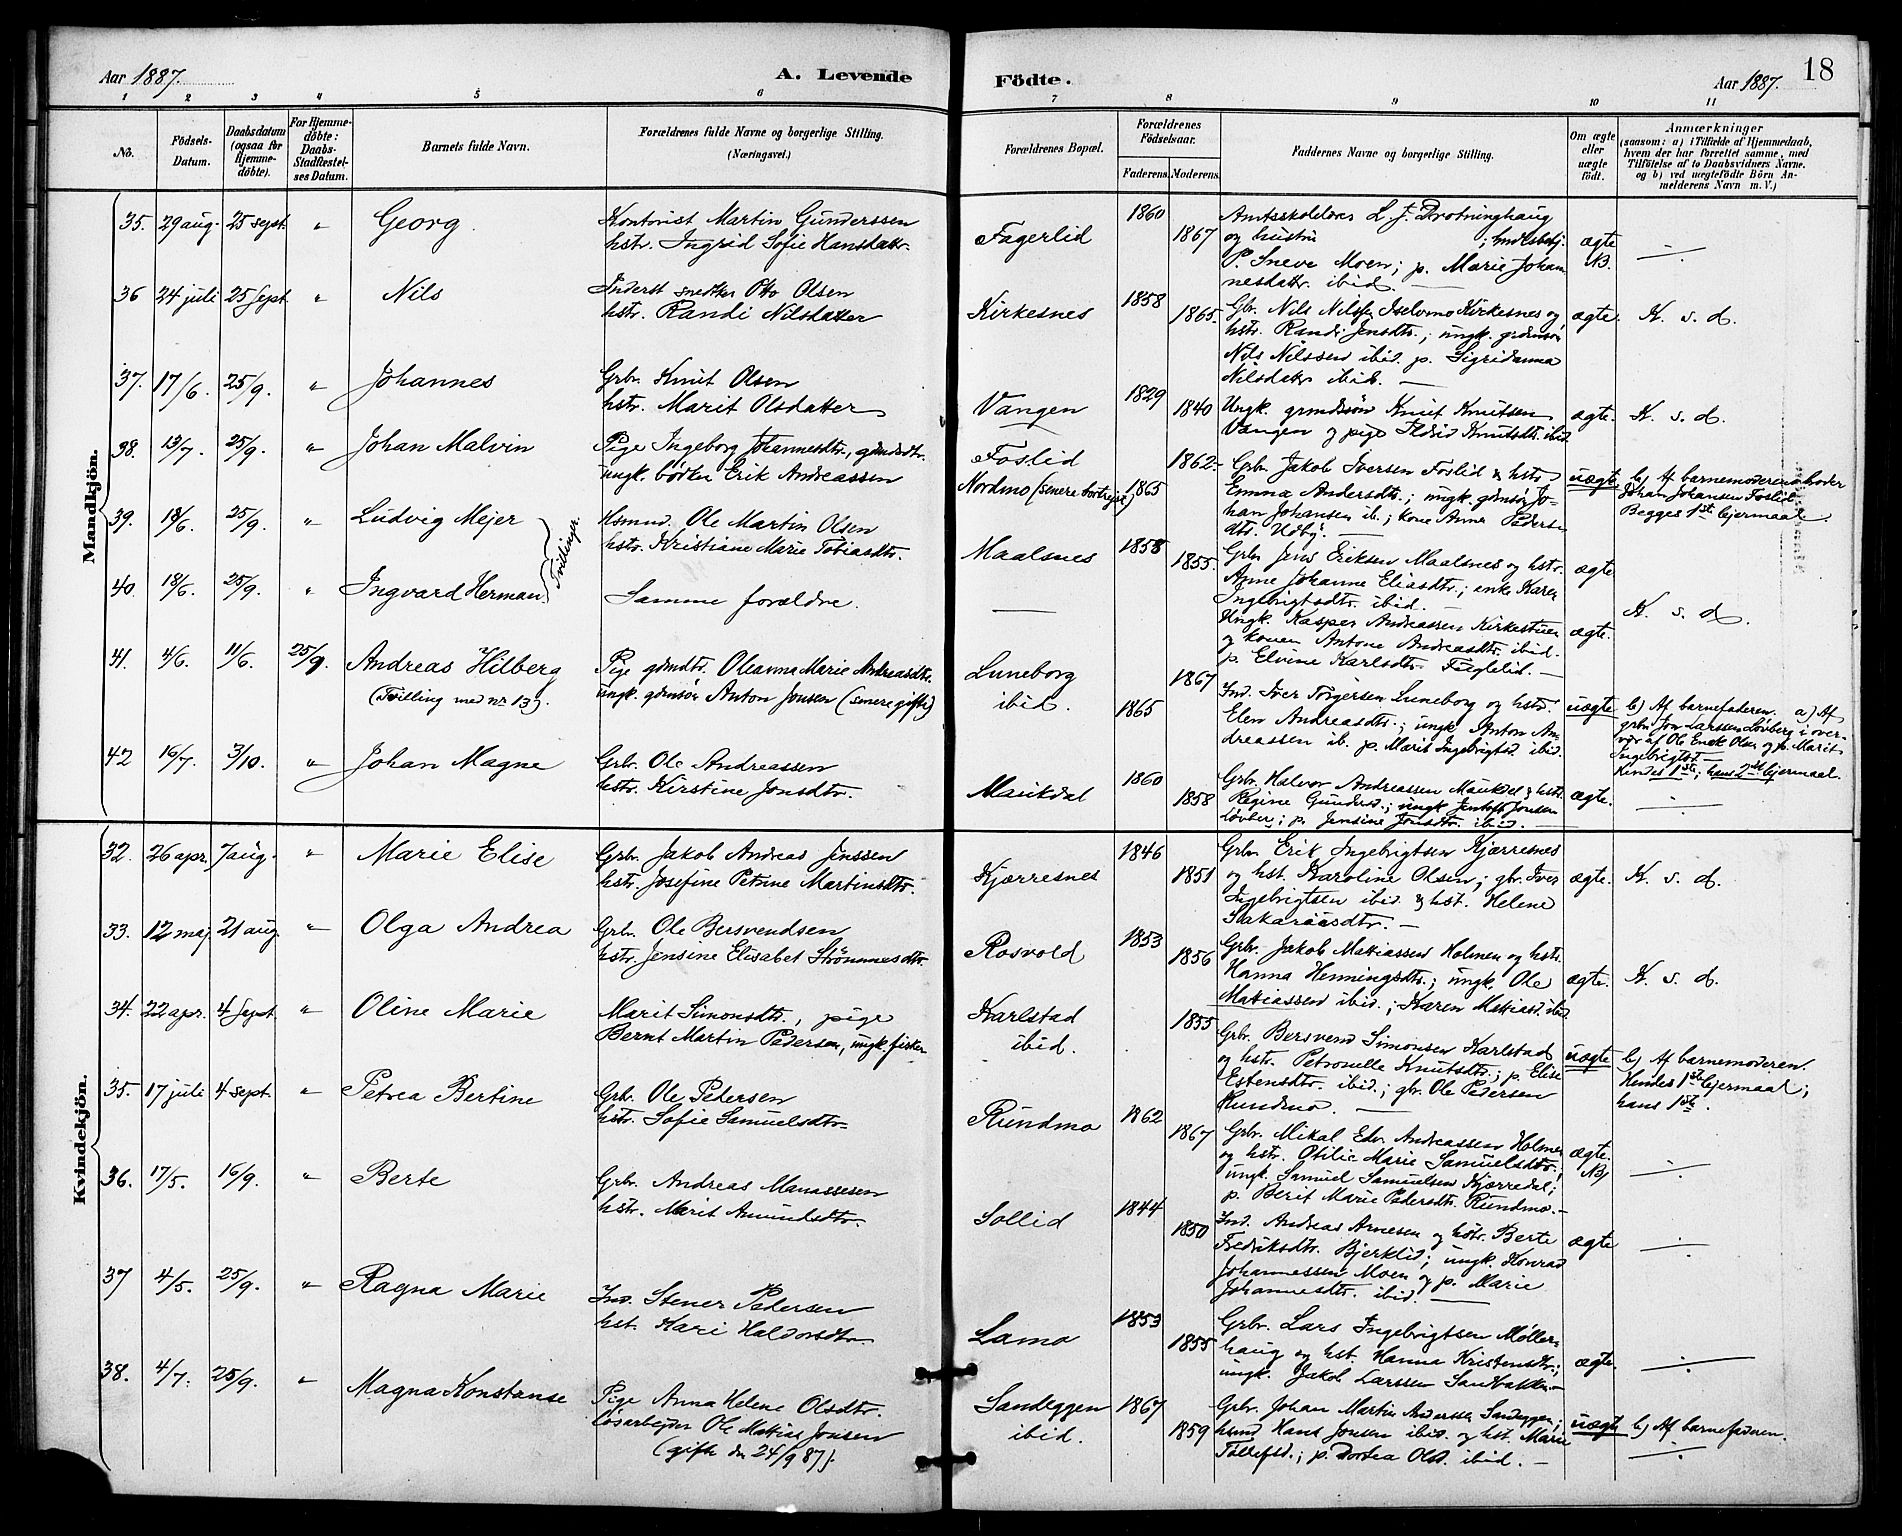 Aar 1887.
A. Levende
Födte.
Aar 1887.
18
1 2 3 4 5 6 7 8 9 10 11
No.
Födsels-Datum.
Daabsdatum (ogsaa for Hjemmedöbte).
For Hjemmedöbte: Daabs-Stadfestelses Datum.
Barnets fulde Navn.
Forældrenes fulde Navne og borgerlige Stilling. (Næringsvei.)
Forældrenes Bopæl.
Forældrenes Födselsaar.
Faderens. Moderens.
Faddernes Navne og borgerlige Stilling.
Om ægte eller uægte födt.
Anmærkninger
(saasom: a) i Tilfælde af Hjemmedaab, hvem der har forrettet samme, med Tilföielse af to Daabsvidners Navne. og b) ved uægtefödte Börn Anmelderens Navn m. V.)
Mandkjön.
35. 29 aug. 25 sept. " Georg
Kontorist Martin Gunderssen
hstr. Ingrid Sofie Hansdattr.
Fagerlid 1860 1867
Amtsskolelærer L. J. Drotninghaug
og hustru ; hndlsbetj.
P. Sneve Moen; p. Marie Johan
nesdattr. ibid. —
ægte NB.
36 24 juli 25 sept " Nils
Inderst snedker Ole Olsen
hstr. Randi Nilsdatter
Kirkesnes 1858 1865.
Gbr. Nils Nilssen Iselvmo Kirkesnes og
hstr. Randi Jensdtr.; ungk. grdmsøn
Nils Nilssen ibid. p. Sigridanna
Nilsdattr ibid. —
ægte. K. s. d.
37. 17/6. 25/9. " Johannes
Grbr. Knut Olsen
hstr. Marit Olsdatter
Vangen 1829 1840
Ungk. grmdssøn Knut Knutsen
Vangen og pige Ildrid Knutsdtr. ibid
ægte. K. s. d.
38. 13/7. 25/9. " Johan Malvin
Pige Ingeborg Johannesdtr., gdmdsdtr.
ungk. bødker Erik Andreassen
Foslid
Nordmo (senere bortrejst) 1865 1862.
Grbr. Jakob Iversen Foslid & hstr
Emma Andersdtr.; ungk. gdmsøn Jo-
han Johansen ib.; kone Anne Peders
dtr. Udby. —
uægte.
b) Af barnemoderens broder
Johan Johansen Foslid.
Begges 1ste lejermaal.
39. 18/6. 25/9. " Ludvig Mejer
Tvillinger.
Hsmnd. Ole Martin Olsen
hstr. Kristiane Marie Tobiasdtr.
Maalsnes 1858 1855.
Grbr Jens Eriksen Maalsnes og hstr.
Anne Johanne Eliasdtr.; enke Karen
Ingebrigtsdtr. ibid. —
ægte
40. 18/6. 25/9. " Ingvard Herman
Samme forældre.
—
Ungk. Kasper Andreassen Kirkestuen
og konen Antone Andreasdtr. ibid.
p. Elvine Karlsdtr. Fuglelid. —
ægte. K. s. d.
41. 4/6. 11/6. 25/9. Andreas Hilberg
(Tvilling med nr 13).
Pige gdmdtr. Oleanna Marie Andreasdtr.
ungk. gdmsøn Anton Jonsen (senere gifte)
Luneborg
ibid. 1865 1867
Ind. Iver Torgersen Luneborg og hstr.
Elen Andreasdtr.; ungk Anton An-
dreassen ib. p. Marit Ingebrigtsd. ibid.
uægte
b) Af barnefaderen. a) Af
grbr. Jon Larssen Løvberg i over-
vær af Ole Enok Olsen og p. Marit
Ingebrigtsd. —
Hendes 1ste; hans 2det lejermaal.
42 16/7. 3/10. " Johan Magne
Grbr. Ole Andreassen
hstr. Kirstine Jonsdtr.
Maukdal 1860 1858
Grbr. Halvor Andreassen Maukdal & hstr
Regine Gundersd.; ungk Jentoft Jonsen
Løvber; p. Jensine Jonsdtr. ibid. —
ægte.
Kvindekjön.
32. 26 apr. 7 aug. " Marie Elise
Grbr. Jakob Andreas Jenssen
hstr. Josefine Petrine Martinsdtr.
Kjærresnes 1846 1851
Grbr. Erik Ingebrigtsen Kjærresnes
og hst. Karoline Olsen; gbr. Iver
Ingebrigtsen ibid. & hst. Helene
Sakariasdtr. —
ægte. K. s. d.
33. 12 maj 21 aug. " Olga Andrea
Grbr. Ole Bersvendsen
hstr. Jensine Elisabet Strømnesdtr.
Rosvold 1853 1856
Grbr. Jakob Mattiassen Holmen og hstr.
Hanna Henningsdtr.; ungk. Ole
Mattiassen ibid.; Karen Mattiasd. ibid.
ægte. K. s. d.
34. 22 apr. 4 sept " Oline Marie
Marit Simonsdtr., pige
Bernt Martin Pedersen, ungk. fisker
Karlstad
ibid. 1855
Grbr. Bersvend Simonsen Karlstad
og hstr. Petronelle Knutsdtr.; p. Elise
Estensdtr. ibid.; gbr. Ole Pedersen
Rundmo. —
uægte
b) Af barnemoderen.
Hendes 1ste lejermaal;
hans 1ste.
35. 17 juli 4 sept. " Petrea Bertine
Grbr. Ole Pedersen
hstr. Sofie Samuelsdtr.
Rundmo 1862 1867
Grbr. Mikal Edv. Andreassen Holmen
og hstr. Otilie Marie Samuelsdtr.;
ungk. Samuel Samuelsen Kjærredal;
p. Berit Marie Pedersdtr. Rundmo. —
ægte. NB
36. 17/5. 16/9. " Berte
Grbr. Andreas Manassesen
hstr. Marit Amundsdtr.
Sollid 1844 1850
Ind. Andreas Arnesen og hstr. Berte
Fredriksdtr. Bjerklid; ungk. Konrad
Johannessen Moen og p. Marie
Johannesdtr. ibid. —
ægte
37 4/5. 25/9. " Ragna Marie
Ind. Stener Pedersen
hst. Kari Haldorsdtr.
Lamo 1853 1855
Grbr. Lars Ingebrigtsen Møller-
haug og hst. Hanna Kristensdtr.;
ungk. Jakob Larssen Sandbakken. —
ægte
38. 4/7. 25/9. " Magna Konstanse
Pige Anna Helene Olsdtr.
løsarbejder Ole Mattias Jonsen
(gifte den 24/9 87).
Sandeggen
ibid. 1867 1859
Grbr. Johan Martin Anderssen Sandeggen;
hsmd Hans Jonsen ibid. og hst. Marie
Tollefsd.; p. Dortea Olsd. ibid. —
uægte b) Af barnefaderen.